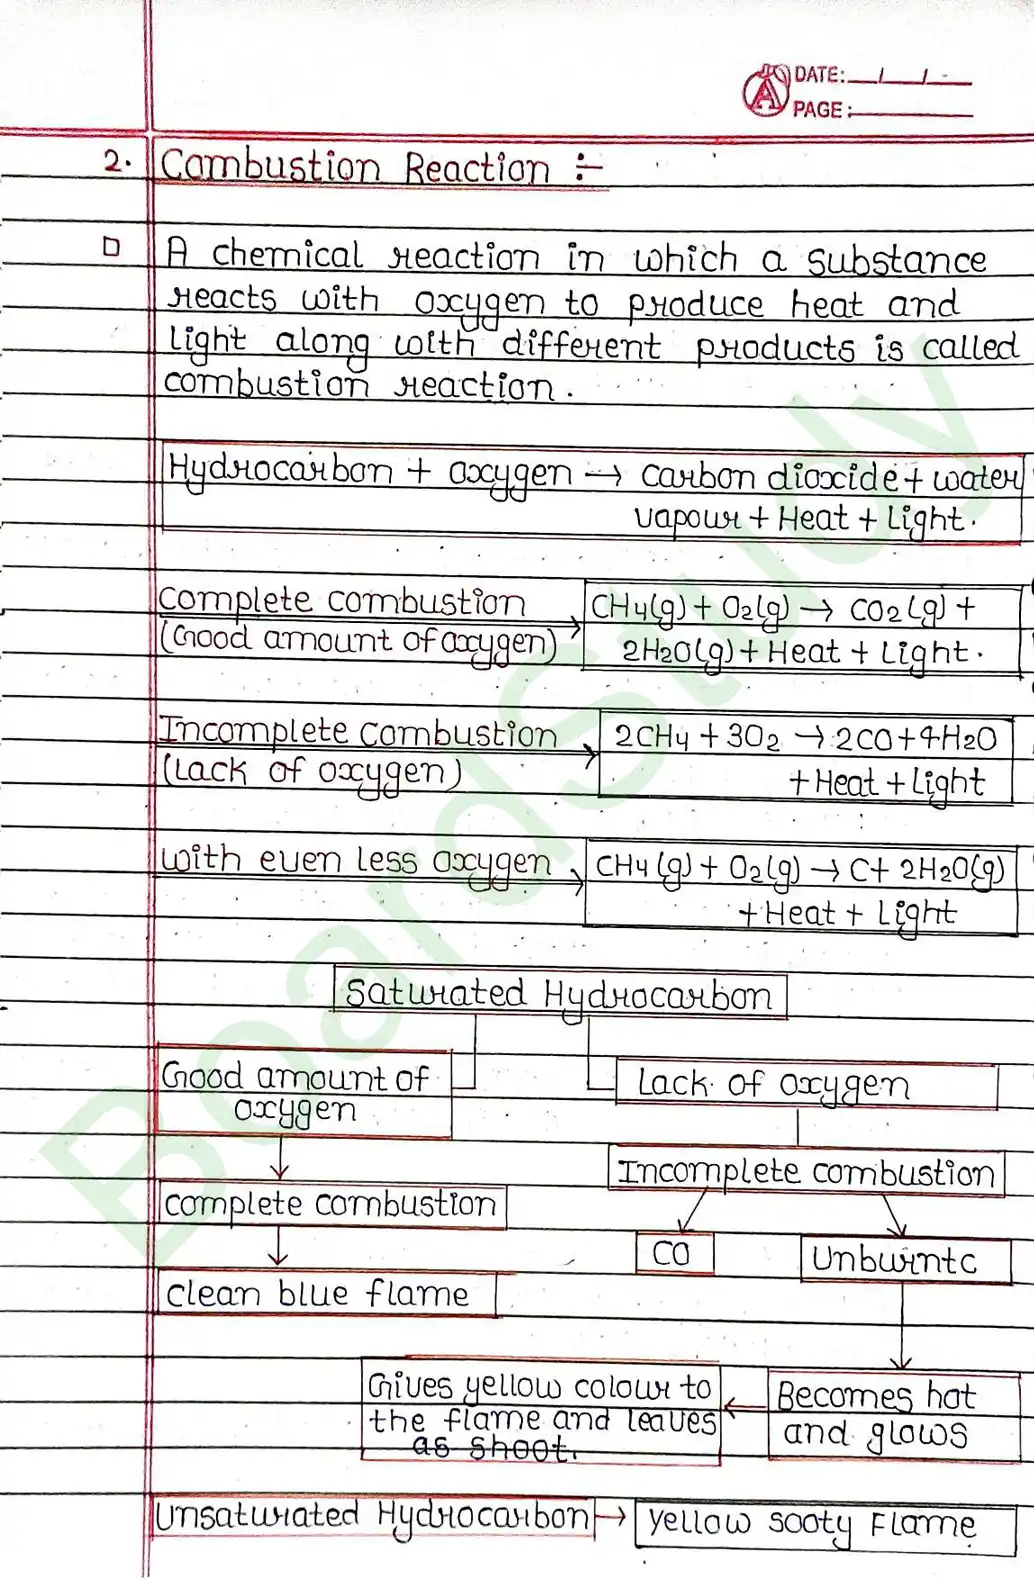 DATE: / /
PAGE:
2. Combustion Reaction :-
A chemical reaction in which a substance
reacts with oxygen to produce heat and
light along with different products is called
combustion reaction.
Hydrocarbon + oxygen → carbon dioxide + water
vapour + Heat + Light.
complete combustion
(Good amount of oxygen)
CH4(g) + O2(g) → CO2(g) +
2H2O(g) + Heat + Light.
Incomplete combustion
(Lack of oxygen)
2CH4 + 3O2 → 2CO + 4H2O
+ Heat + Light
with even less oxygen
CH4(g) + O2(g) → C + 2H2O(g)
+ Heat + Light
Saturated Hydrocarbon
Good amount of
oxygen
Lack of oxygen
complete combustion
Incomplete combustion
clean blue flame
CO
Unburntc
Becomes hot
and glows
Gives yellow colour to
the flame and leaves
as shoot.
Unsaturated Hydrocarbon → yellow sooty Flame
BoardStudy